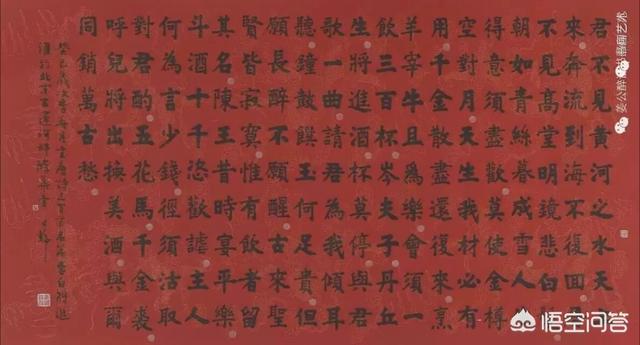 君不見黃河之水天
來奔流到海不復回
不見高堂明鏡悲白
朝如青絲暮成雪人
得意須盡歡莫使金樽
空對月天生我材必有
用千金散盡還復來烹
羊宰牛且為樂會須一
飲三百杯岑夫子丹丘
生將進酒杯莫停與君
歌一曲請君為我傾耳
聽鐘鼓饌玉何足貴但
願長醉不願醒古來聖
賢皆寂寞惟有飲者留
其名陳王昔時宴平樂
斗酒十千恣歡謔主人
何為言少錢徑須沽取
對君酌五花馬千金裘
呼兒將出換美酒與爾
同銷萬古愁
悟空问答